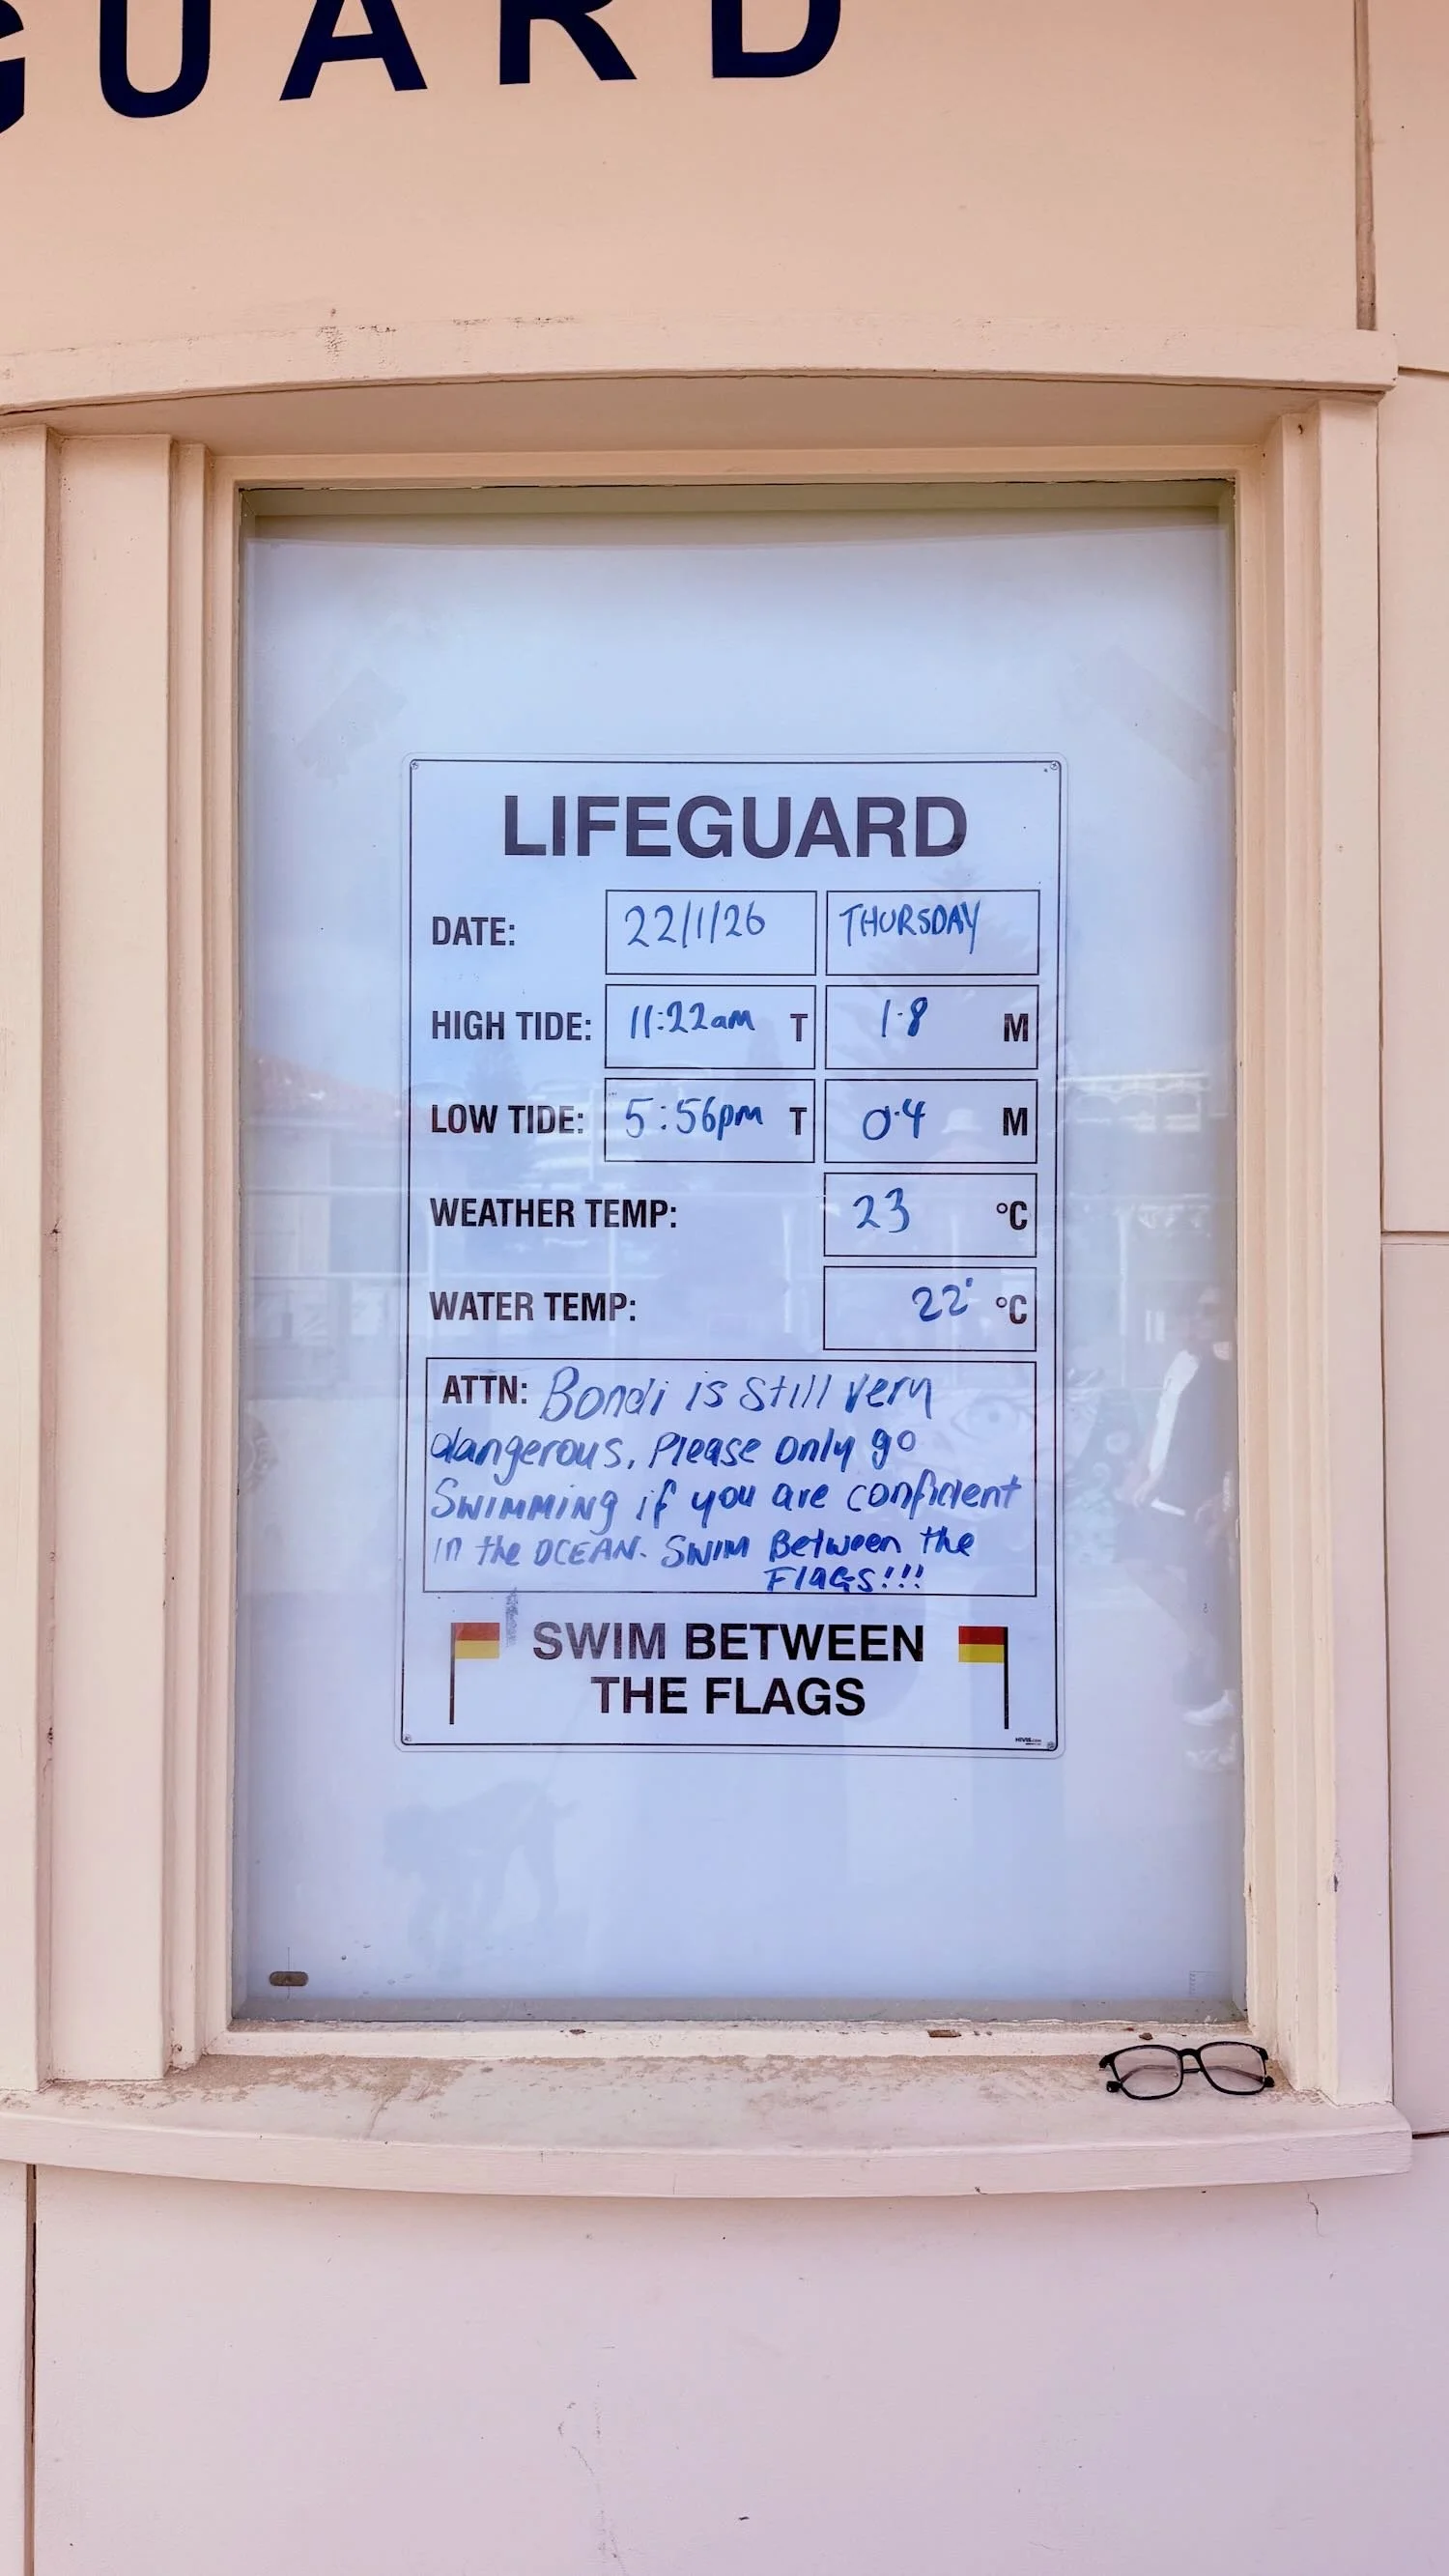 GUARD
LIFEGUARD
DATE: 22/1/26 THURSDAY
HIGH TIDE: 11:22am T 1.8 M
LOW TIDE: 5:56pm T 0.4 M
WEATHER TEMP: 23 °C
WATER TEMP: 22° °C
ATTN: Bondi is still very
dangerous, Please only go
SWIMMING if you are confident
in the OCEAN. SWIM Between the
FlaGS!!!
SWIM BETWEEN
THE FLAGS